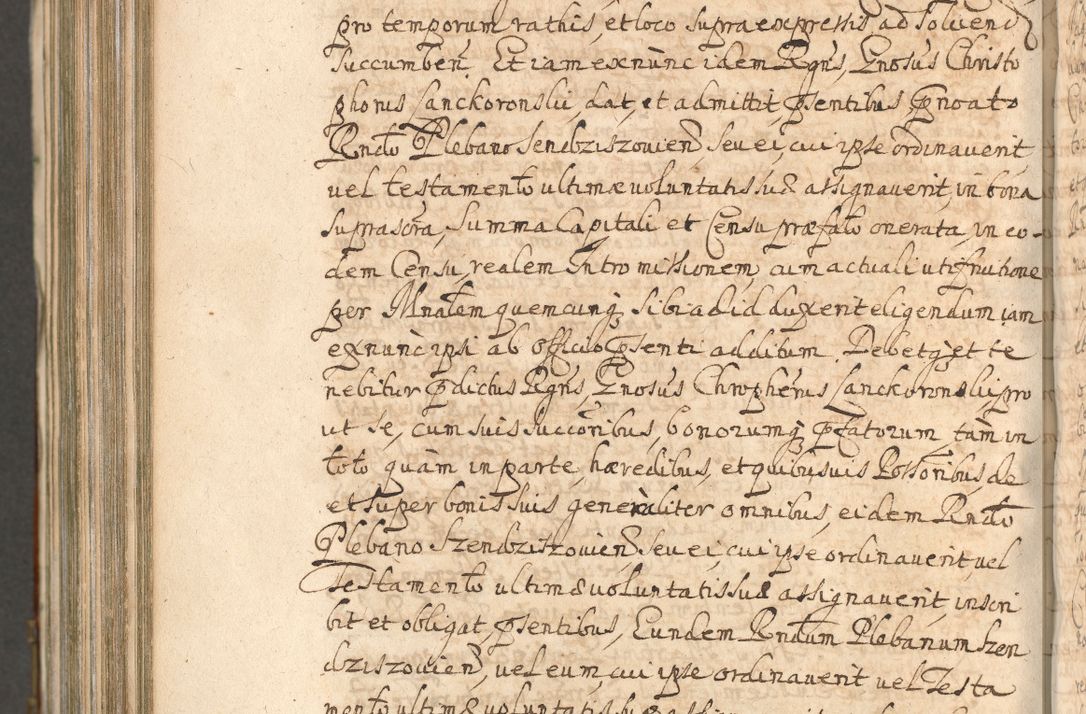 pro temporum rathis, et loco supra expressis ad solvend
succumben. Et iam ex nunc idem Rgns, Gnosus Christo
phorus Lanckoronskii, dat, et admittit, psentibus, pnoato
Rndo Plebano Sendziszovien, seu ei, cui ipse ordinaverit,
vel testamento ultimæ voluntatis suæ assignaverit, in bona
suprascra, summa Capitali et Censu præfato onerata, in eo-
dem Censu, realem Intromissionem, cum actuali utifruitione
per Mnalem quemcunq sibi ad id duxerit eligendum iam
ex nunc ipsi ab officio psenti additum. Debetq et te
nebitur pdictus Rgns, Gnosus Chrophērus Lanckoronskii, pro
ut se, cum suis succoribus, bonorumq pfatorum, tam in
toto quàm in parte, hæredibus, et quibusvis Possoribus de
et super bonis suis generaliter omnibus, eidem Rndo
Plebano Szendziszovien, seu ei, cui ipse ordinaverit, vel
Testamento ultimæ voluntatis suæ assignaverit, inscri
bit et obligat, psentibus, Eundem Rndum Plebanum Szen
dziszovien, vel eum, cui ipse ordinaverit vel Testa
mento ultimæ voluntatis suæ